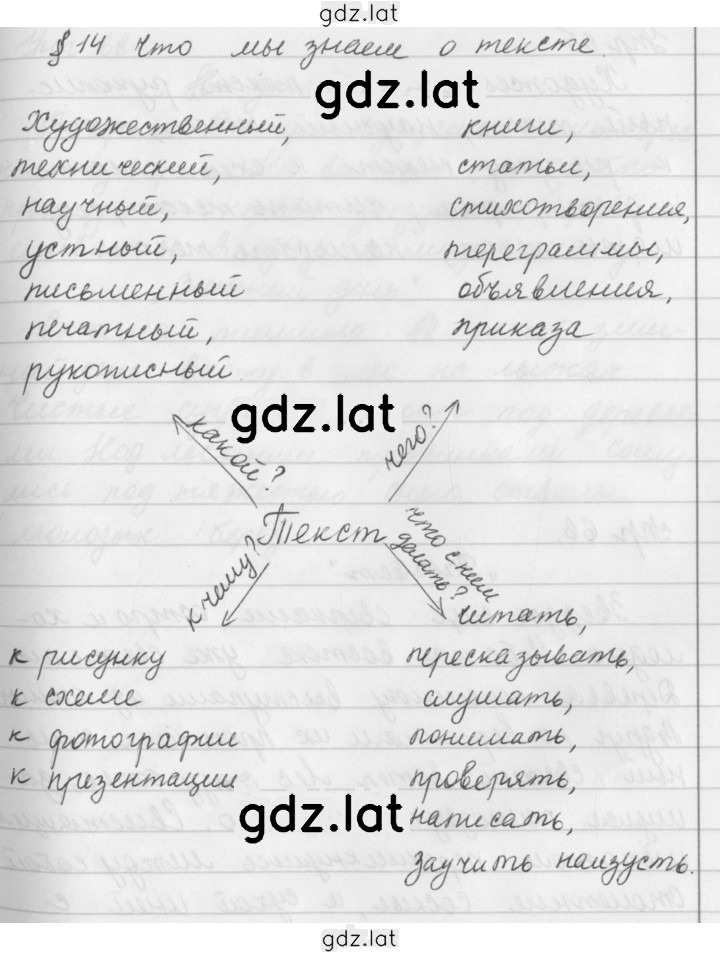 gdz.lat
§ 14 Что мы знаем о тексте.
gdz.lat
Художественный,
технический,
научный,
устный,
письменный
печатный,
рукописный.
книги,
статьи,
стихотворения,
тереграммы,
объявления,
приказа
gdz.lat
какой?
чего?
Текст
к чему?
что с ним
делать?
к рисунку
к схеме
к фотографии
к презентации
читать,
пересказывать,
слушать,
понимать,
проверять,
написать,
заучить наизусть.
gdz.lat
gdz.lat